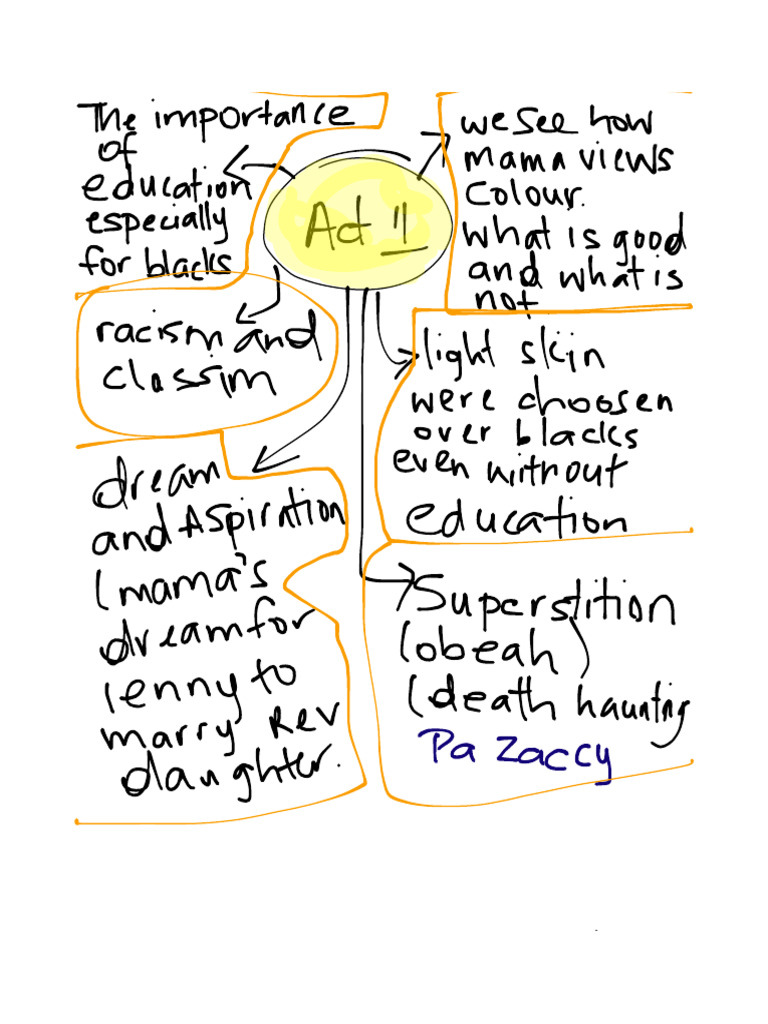 Act 11
The importance
of
education
especially
for blacks
we see how
mama views
colour.
what is good
and what is
not
racism and
classim
light skin
were choosen
over blacks
even without
education
dream
and Aspiration
(mama's
dream for
lenny to
marry Rev
daughter.
Superstition
(obeah)
(death haunting
Pa Zaccy